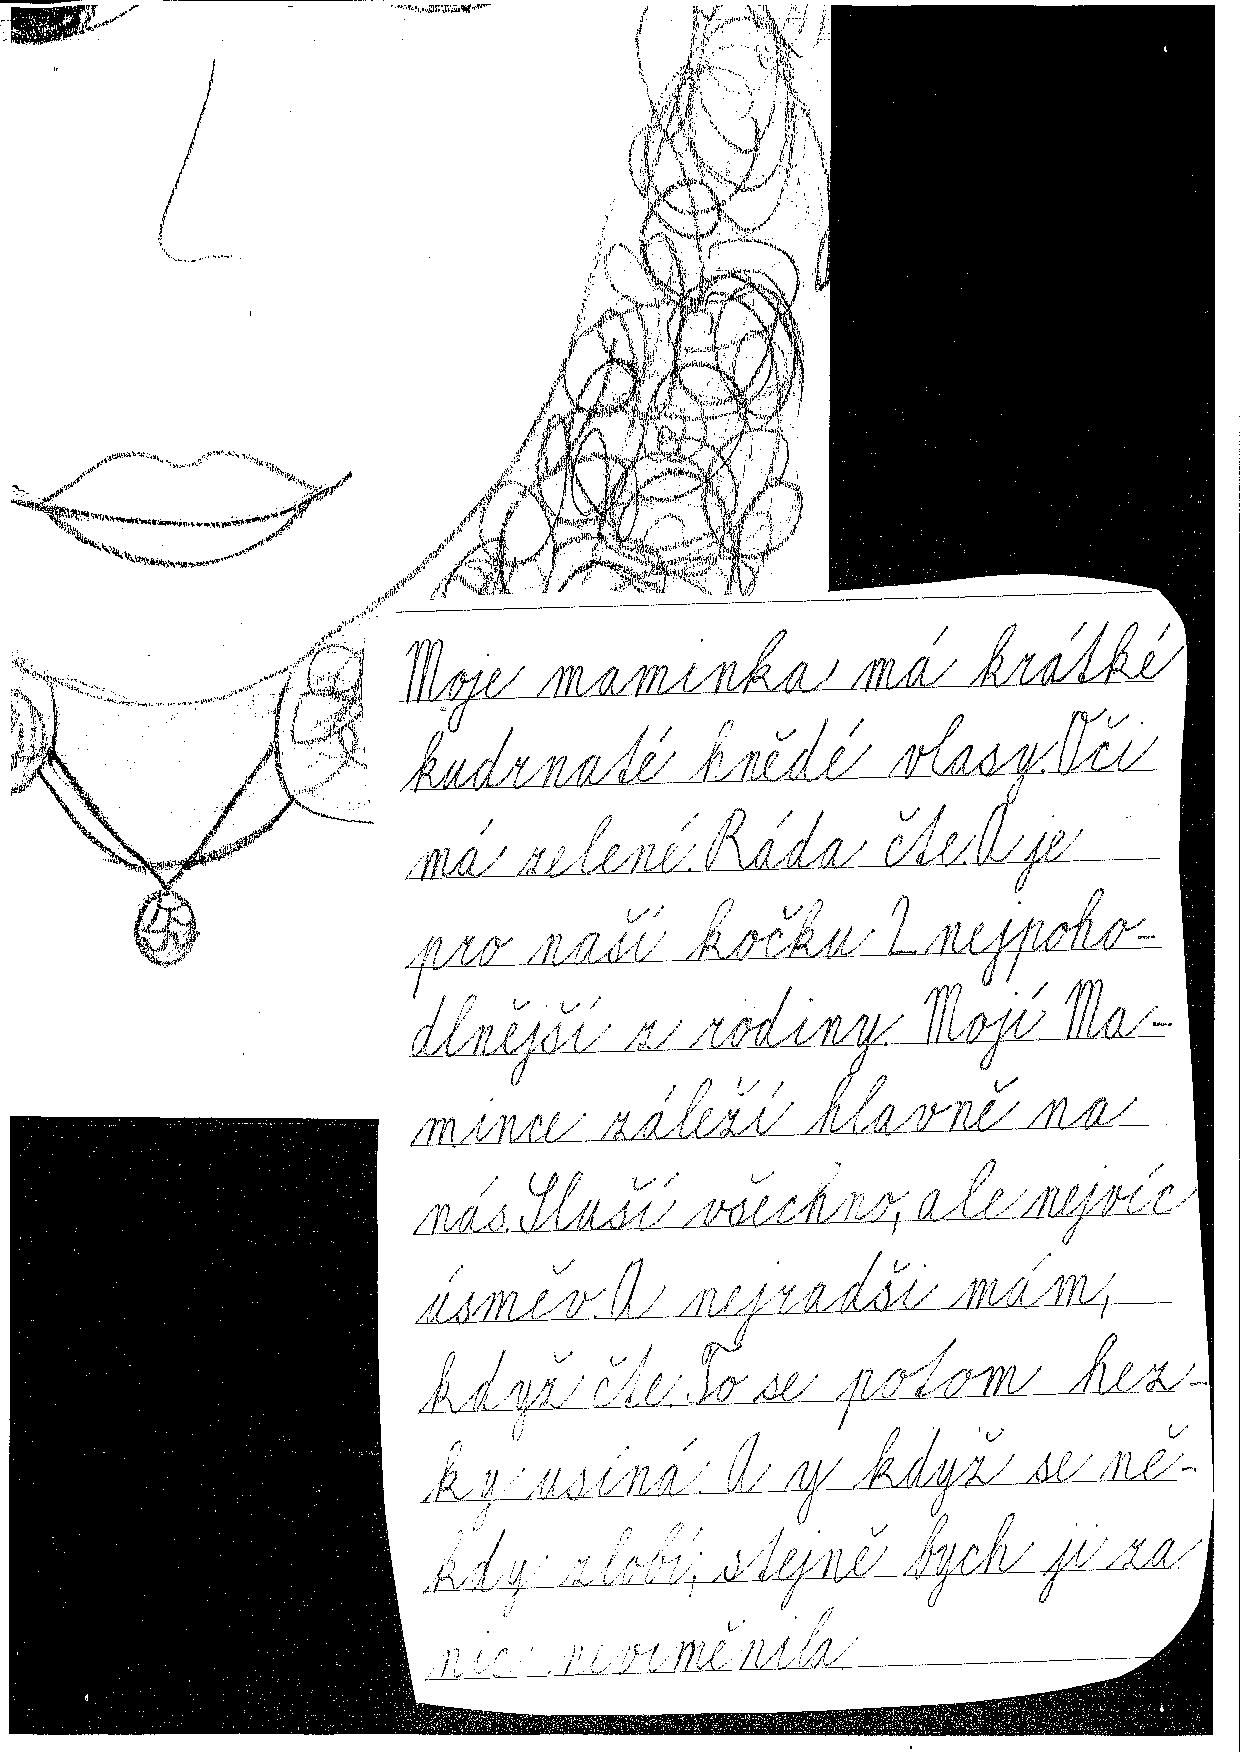 Moje maminka má krátké
kudrnaté hnědé vlasy. Oči
má zelené. Ráda čte. A je
pro naší kočku 2 nejpoho-
dlnější z rodiny. Mojí Ma-
mince záleží hlavně na
nás. Sluší všechno, ale nejvíc
úsměv. A nejradši mám,
když čte. To se potom hez-
ky usíná. A y když se ně-
kdy zlobí, stejně bych ji za
nic neviměnila